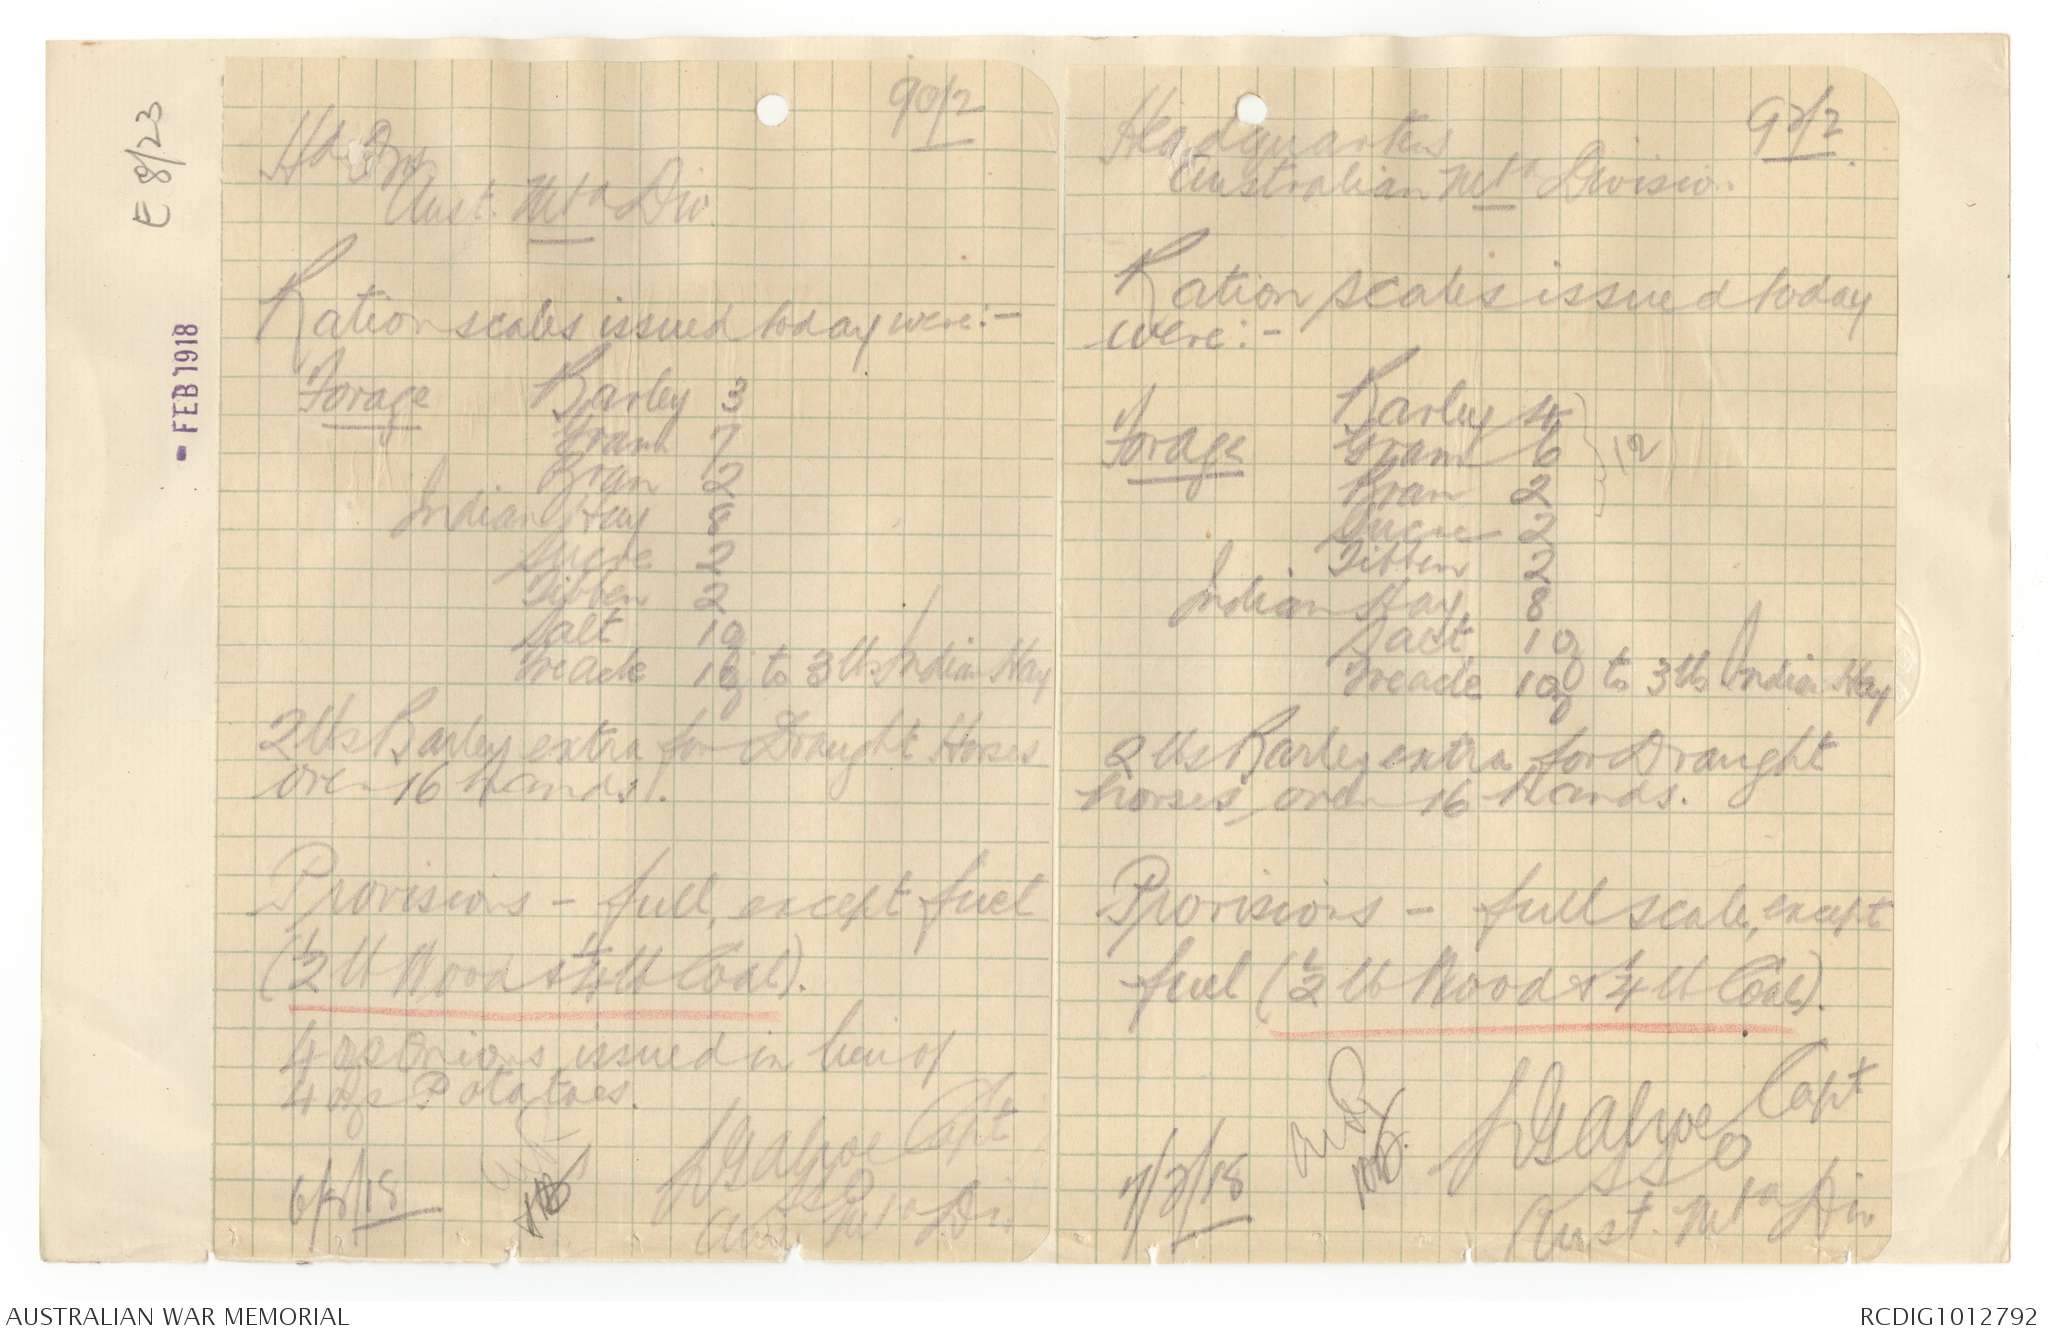 E 8/23
- FEB 1918
90/2
Hd. Qrs
Aust. Mtd Div
Ration scales issued today were:-
Forage Barley 3
Gram 7
Bran 2
Indian Hay 8
2
Tibben 2
Salt 1 oz
Treacle 1 oz to 3 lbs Indian Hay
2 lbs Barley extra for Draught Horses
over 16 hands.
Provisions - full, except fuel
(1/2 lb Wood & 1/4 lb Coal).
4 ozs Onions issued in lieu of
4 ozs Potatoes.
Capt
6/2/18 SSO
Aust. Mtd Div
Headquarters
Australian Mtd Division
Ration scales issued today
were:-
Forage Barley 4
Gram 6 12
Bran 2
2
Tibben 2
Indian Hay 8
Salt 1 oz
Treacle 1 oz to 3 lbs Indian Hay
2 lbs Barley extra for Draught
horses, over 16 hands.
Provisions - full scale, except
fuel (1/2 lb Wood & 1/4 lb Coal).
Capt
7/2/18 SSO
Aust. Mtd Div
AUSTRALIAN WAR MEMORIAL
RCDIG1012792